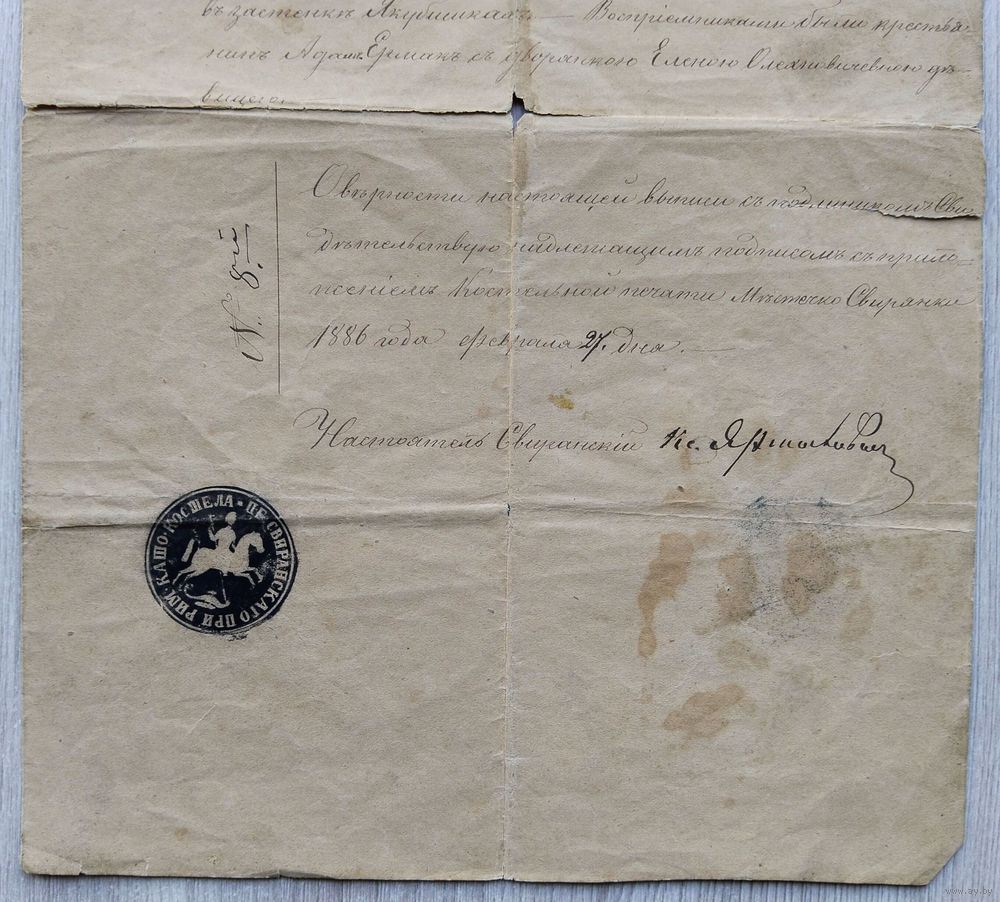 въ застенкѣ Якубишкахъ — Воспріемниками были крестья-
нинъ Адамъ Ермакъ съ дворянкою Еленою Олехновичевною дѣ-
вицею.
О вѣрности настоящей выписи съ подлинникомъ Сви-
дѣтельствую надлежащимъ подписомъ съ прило-
женіемъ Костельной печати Мѣстечко Свиранки
1886 года февраля 27. дня. —
N. 8ой.
Настоятель Свиранскій Кс.
ПЕ. СВИРАНСКАГО ПРИ РИМ. КАѲО. КОСШЕЛА
www.ay.by